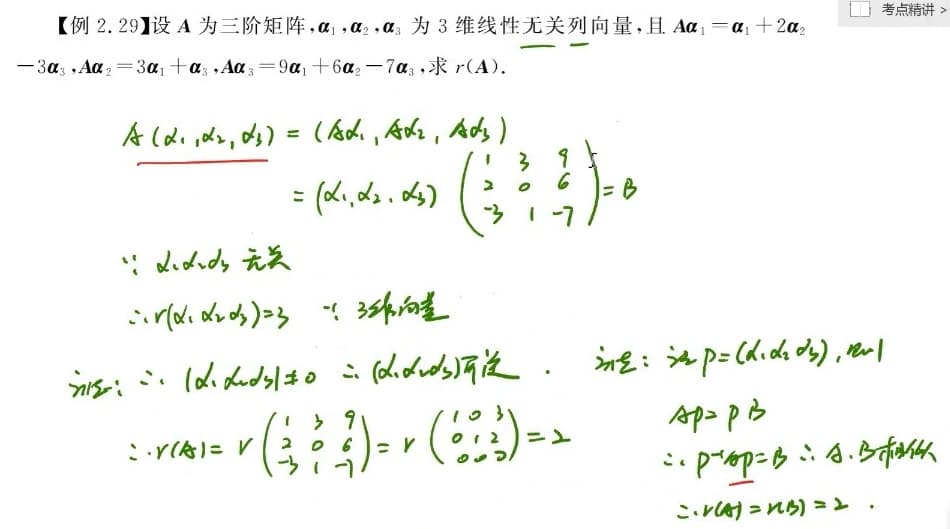 考点精讲 >
【例 2.29】设 A 为三阶矩阵,α₁,α₂,α₃ 为 3 维线性无关列向量,且 Aα₁=α₁+2α₂
-3α₃,Aα₂=3α₁+α₃,Aα₃=9α₁+6α₂-7α₃,求 r(A).
A(α₁,α₂,α₃) = (Aα₁, Aα₂, Aα₃)
= (α₁,α₂,α₃) (1 3 9
2 0 6
-3 1 -7) = B
∵ α₁α₂α₃ 无关
∴ r(α₁ α₂ α₃)=3 ∵ 3维向量
∴ |α₁ α₂ α₃|≠0 ∴ (α₁α₂α₃)可逆.
∴ r(A) = r (1 3 9
2 0 6
-3 1 -7) = r (1 0 3
0 1 2
0 0 0) = 2
: 设 P=(α₁α₂α₃), 则
AP = PB
∴ P⁻¹AP=B ∴ A.B相似
∴ r(A) = r(B) = 2 .